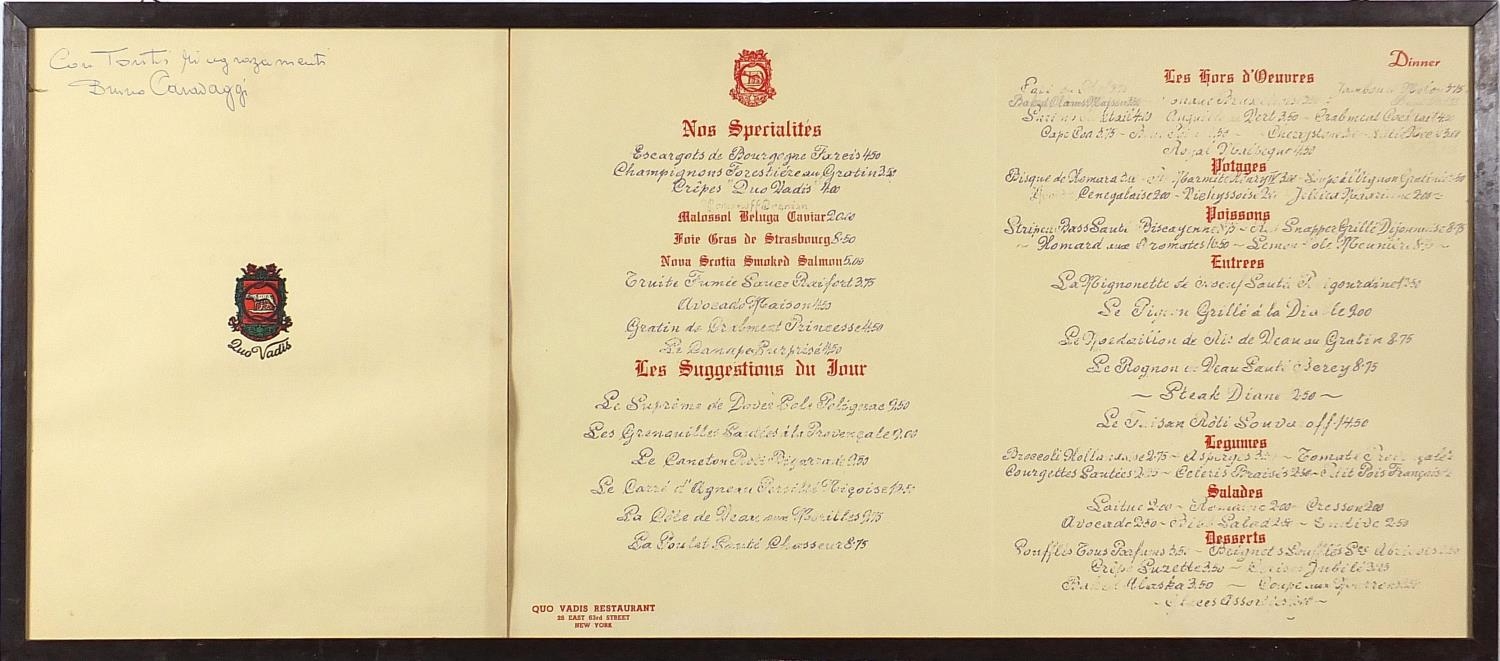 Con Tanti Ringraziamenti
Bruno Caravaggi
Quo Vadis
Nos Specialités
Escargots de Bourgogne Farcis 4.50
Champignons Forestière au Gratin 3.50
Crêpes "Quo Vadis" 4.00
Malossol Beluga Caviar
Foie Gras de Strasbourg 8.50
Nova Scotia Smoked Salmon 5.00
Truite Fumée Sauce Raifort 3.75
Avocado Maison 4.50
Gratin de Crabmeat Princesse 4.50
Le Canapé Surprise 4.50
Les Suggestions du Jour
Le Suprême de Dover Sole Polignac 9.50
Les Grenouilles Sautées à la Provençale 9.00
Le Caneton Rôti Bigarrade 9.50
Le Carré d'Agneau Persillé Niçoise 12.50
La Côte de Veau aux Morilles 9.75
La Poulet Sauté Chasseur 8.75
QUO VADIS RESTAURANT
26 EAST 63rd STREET
NEW YORK
Dinner
Les Hors d'Oeuvres
Melon 3.75
Maison
Anguille au Vert 3.50 - Crabmeat Cocktail 4.50
Cape Cod 3.75 - Cherrystone
Royal
Potages
Bisque de Homard - Marmite Henry IV 3.00 - Soupe à l'Oignon Gratinée
Senegalaise 2.00 - Vichyssoise - Jellied Madrilène 2.00
Poissons
Striped Bass Sauté Biscayenne - Red Snapper Grillé Dijonnaise 8.75
~ Homard aux Aromates - Lemon Sole Meunière ~
Entrees
La Mignonette de Boeuf Sauté Périgourdine
Le Pigeon Grillé à la Diable 9.00
Le Médaillon de Ris de Veau au Gratin 8.75
Le Rognon de Veau Sauté Bercy 8.75
~ Steak Diane ~
Le Faisan Rôti Souvaroff 14.50
Legumes
Broccoli Hollandaise 2.75 - Asperges - Tomate Provençale
Courgettes Sautées - Celeris Braisés 2.50 - Petit Pois Française
Salades
Laitue 2.00 - Romaine 2.00 - Cresson 2.00
Avocado 2.50 - Bibb Salad - Endive 2.50
Desserts
Soufflés Tous Parfums 3.50 - Beignets Soufflés Sce Abricots
Crêpe Suzette 3.50 ~ Cerises Jubilé
Baked Alaska 3.50 ~ Coupe aux Marrons
~ Glaces Assorties ~